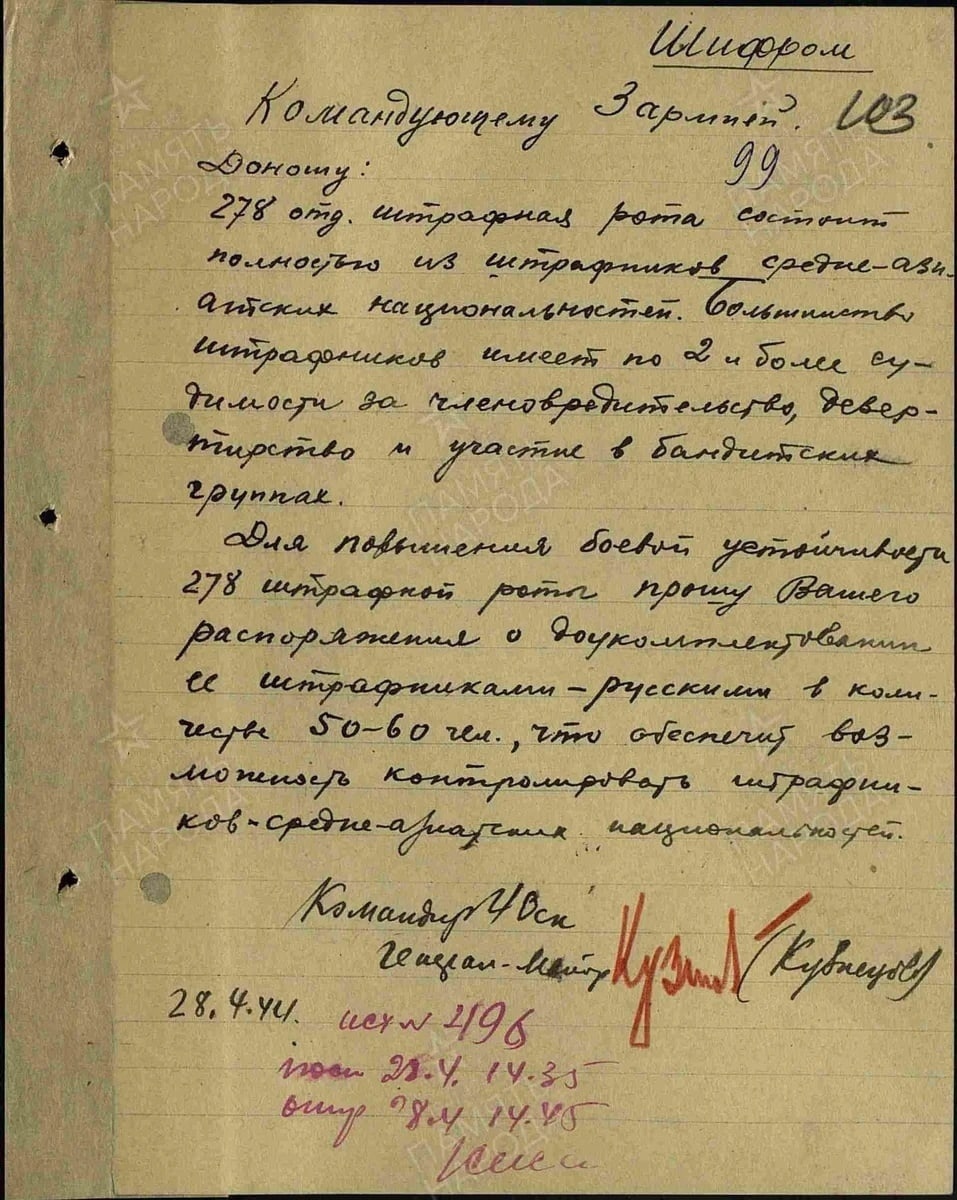 Шифром
Командующему 3 армией.
103
99
Доношу:
278 отд. штрафная рота состоит
полностью из штрафников средне-ази-
атских национальностей. Большинство
штрафников имеет по 2 и более су-
димости за членовредительство, дезер-
тирство и участие в бандитских
группах.
Для повышения боевой устойчивости
278 штрафной роты прошу Вашего
распоряжения о доукомплектовании
ее штрафниками-русскими в коли-
честве 50-60 чел., что обеспечит воз-
можность контролировать штрафни-
ков-средне-азиатских национальностей.
Командир 40ск
генерал-майор (Кузнецов)
28.4.44.
исх № 496
28.4. 14.35
28.4 14.45
ПАМЯТЬ НАРОДА